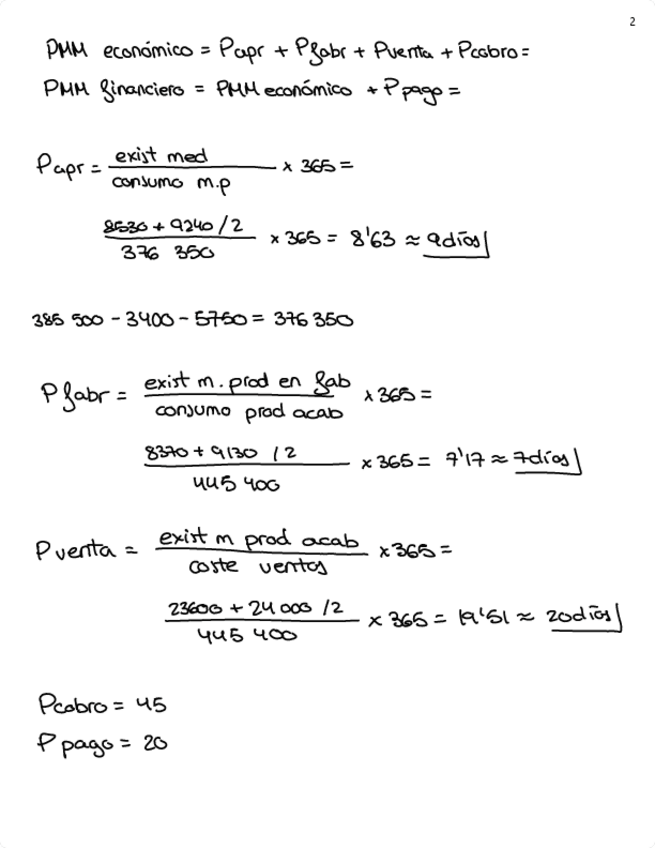 2
PMM económico = Papr + Pfabr + Pventa + Pcobro =
PMM financiero = PMM económico + P pago =
Papr = exist med / consumo m.p x 365 =
8530 + 9240 / 2 / 376 350 x 365 = 8'63 ≈ 9días
385 500 - 3400 - 5750 = 376 350
P fabr = exist m. prod en fab / consumo prod acab x 365 =
8370 + 9130 / 2 / 445 400 x 365 = 7'17 ≈ 7días
P venta = exist m prod acab / coste ventas x 365 =
23600 + 24 000 / 2 / 445 400 x 365 = 19'51 ≈ 20días
Pcobro = 45
P pago = 20